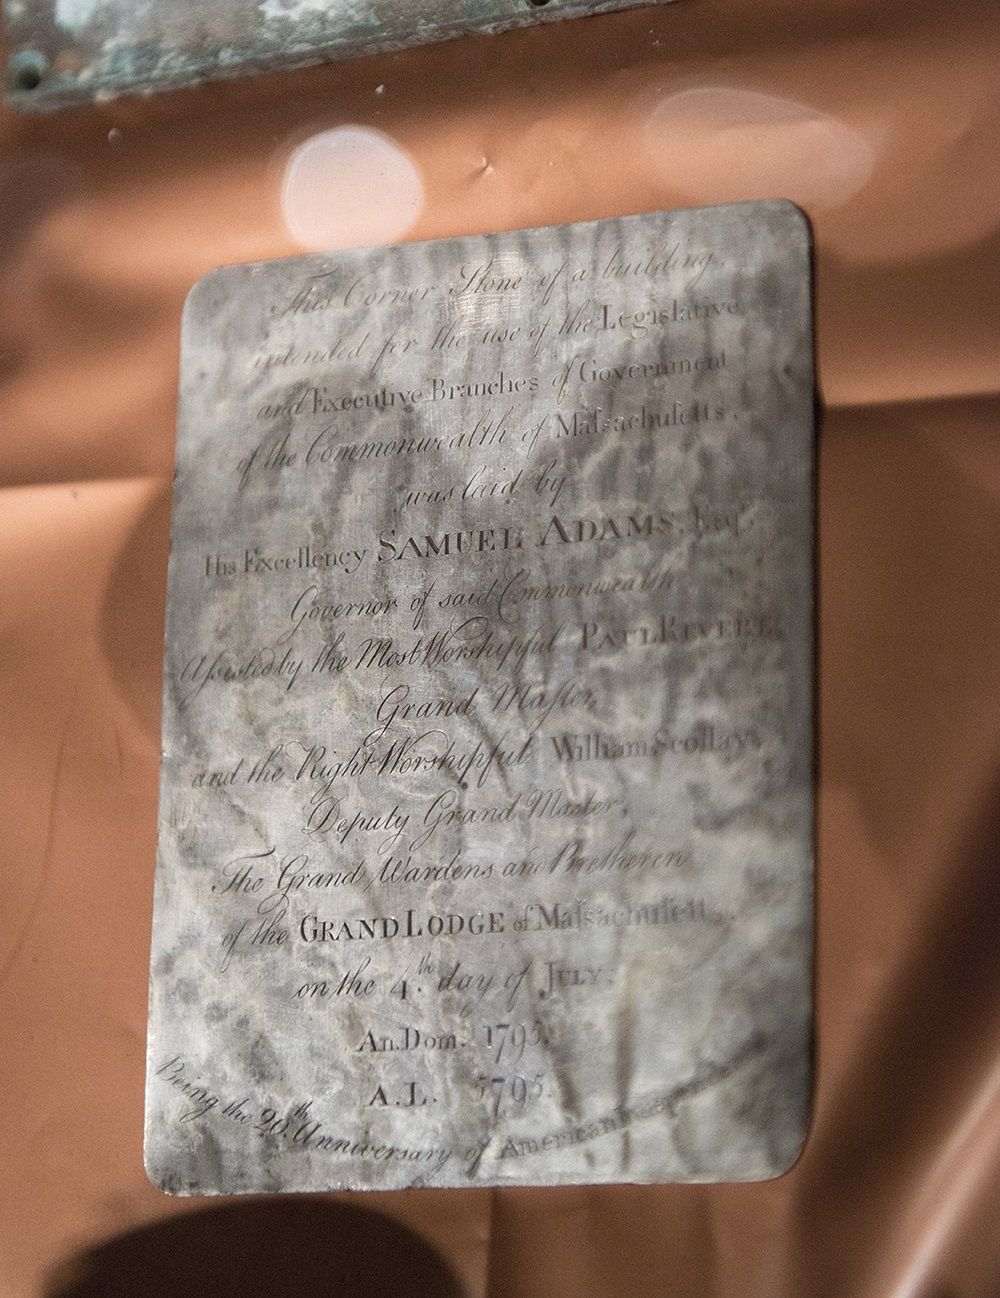 This Corner Stone of a building,
intended for the use of the Legislative
and Executive Branches of Government
of the Commonwealth of Maſsachuſetts,
was laid by
His Excellency SAMUEL ADAMS, Esqr.
Governor of said Commonwealth
Aſsisted by the Most Worshipful PAUL REVERE
Grand Maſter,
and the Right Worshipful William Scollay,
Deputy Grand Master,
The Grand Wardens and Bretheren
of the GRAND LODGE of Maſsachuſetts,
on the 4th. day of JULY,
An. Dom. 1795.
A.L. 5795.
Being the 20th. Anniversary of American Independence